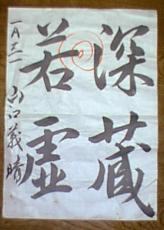 深蔵
若虚
一八三一 山口義晴